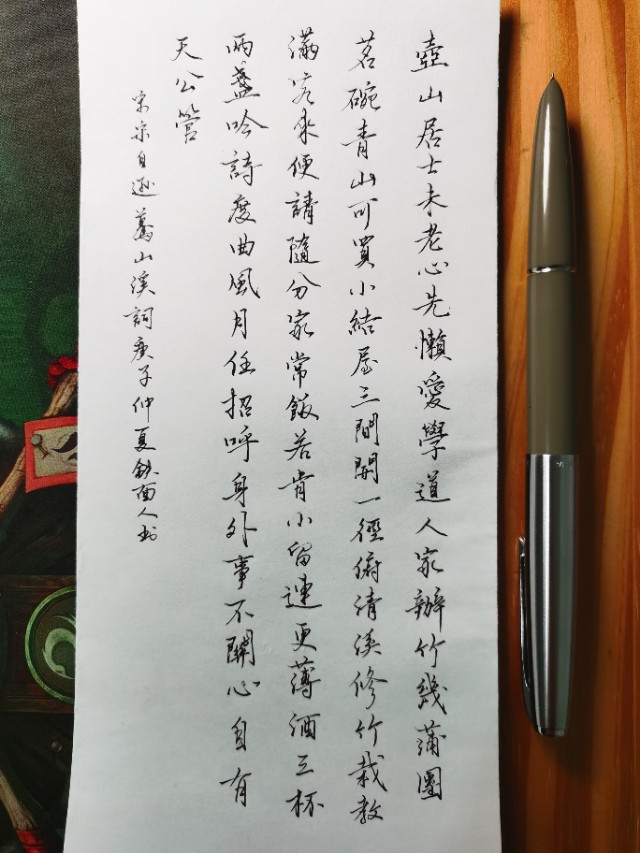 壺山居士未老心先懶愛學道人家辦竹幾蒲團
茗碗青山可買小結屋三間開一徑俯清溪修竹栽教
滿客來便請隨分家常飯若肯小留連更薄酒三杯
兩盞吟詩度曲風月任招呼身外事不關心自有
天公管
宋宋自遜蓦山溪詞庚子仲夏鐵面人書